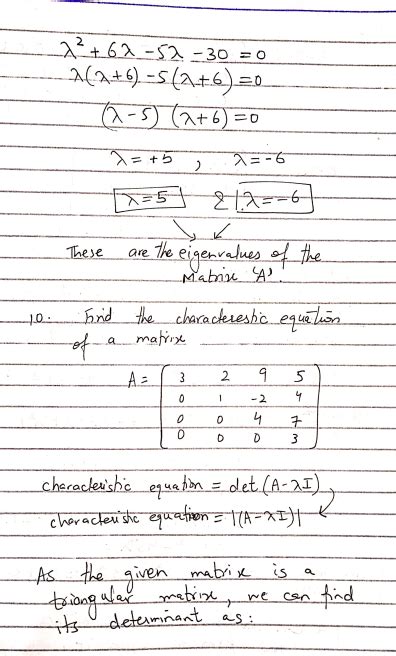 λ² + 6λ - 5λ - 30 = 0
λ(λ+6) - 5(λ+6) = 0
(λ-5) (λ+6) = 0
λ = +5 , λ = -6
λ = 5 & λ = -6
These are the eigenvalues of the
Matrix 'A'.
10. Find the characterestic equation
of a matrix
A = [ 3 2 9 5
0 1 -2 4
0 0 4 7
0 0 0 3 ]
characteristic equation = det (A-λI)
characteristic equation = |(A-λI)|
As the given matrix is a
triangular matrix, we can find
its determinant as: